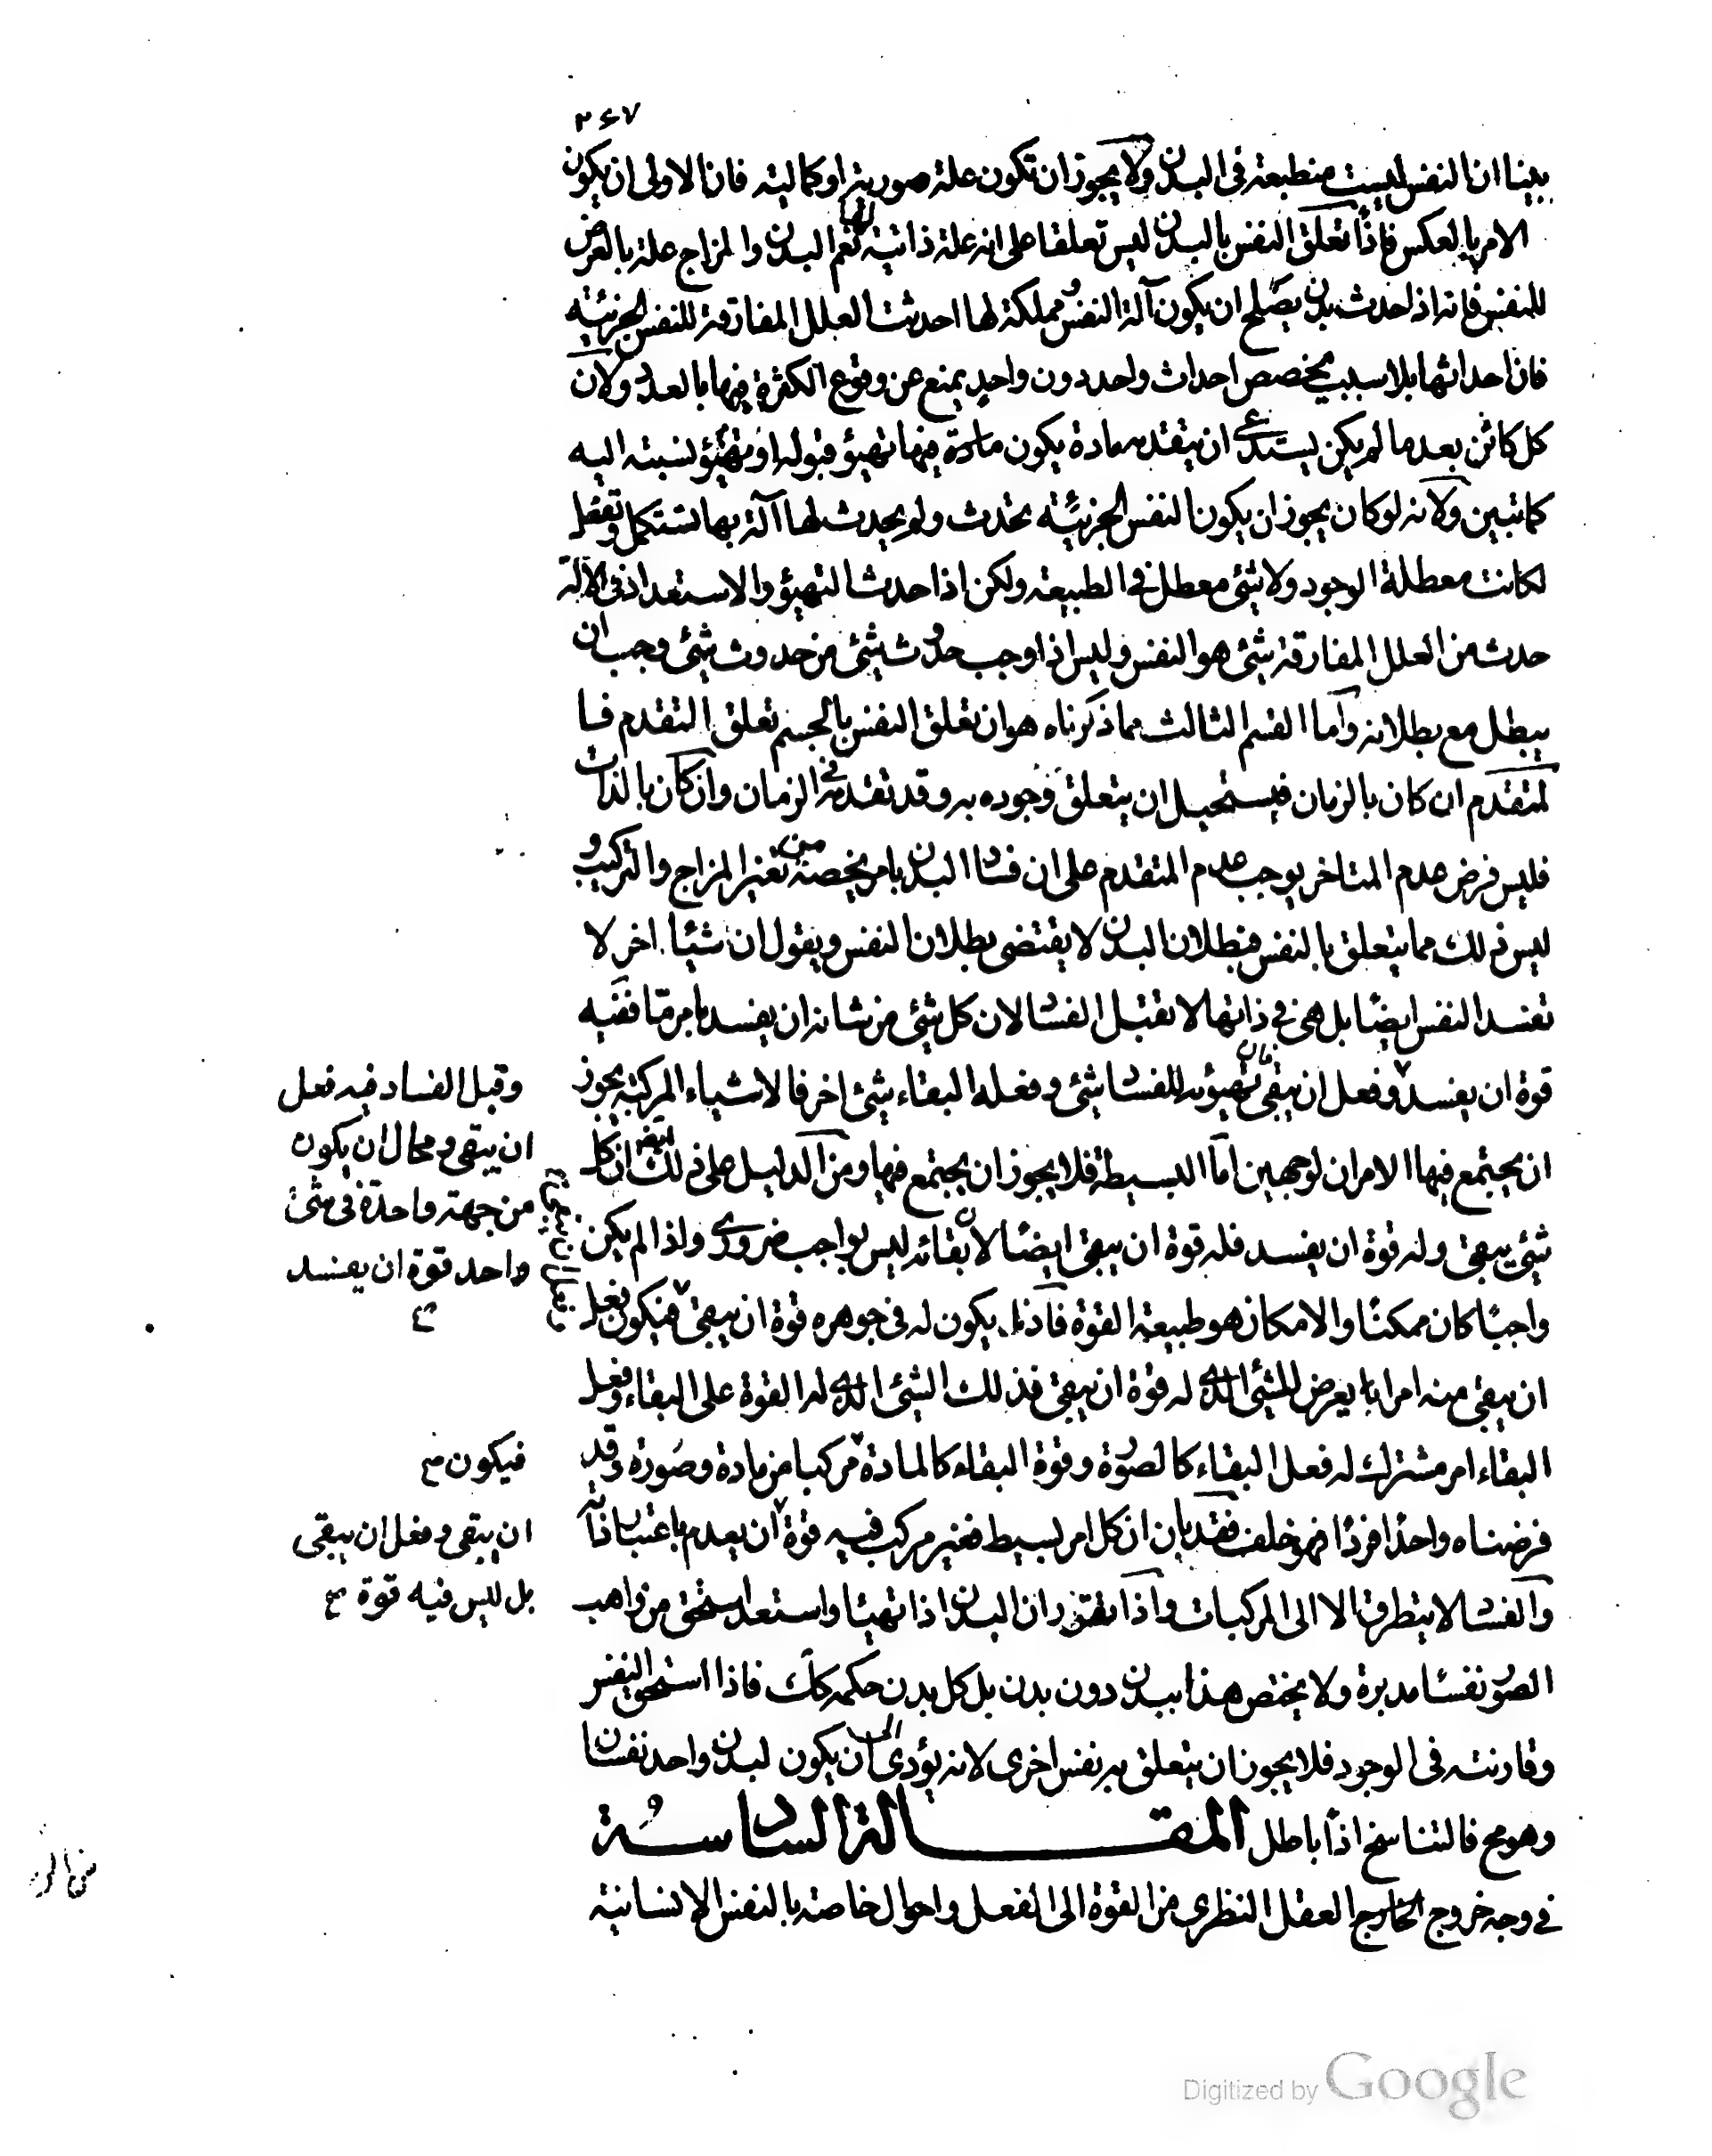 ٣٤٧
بينا ان النفس ليست منطبعة فى البدن ولا يجوز ان تكون علة صورية او كمالية فان الاولى ان يكون
الامر بالعكس فاذاً تعلق النفس بالبدن ليس تعلقا على انه علة ذاتية لها نعم البدن والمزاج علة بالعرض
للنفس فانه اذا حدث بدن يصلح ان يكون آلة النفس ومملكة لها احدثت العلل المفارقة للنفس الجزئية
فان احداثها بلا سبب يخصص احداث واحد دون واحد يمنع عن وقوع الكثرة فيها بالعدد ولان
كل كائن بعد ما لم يكن يستدعى ان يتقدمه مادة يكون مادة فيها تهيؤ قبوله او تهيؤ نسبته اليه
كما تبين ولانه لو كان يجوز ان يكون النفس الجزئية تحدث ولم يحدث لها آلة بها تستكمل وتفعل
لكانت معطلة الوجود ولا شئ معطل فى الطبيعة ولكن اذا حدث التهيؤ والاستعداد فى الآلة
حدث من العلل المفارقة شئ هو النفس وليس اذا وجب حدوث شئ من حدوث شئ وجب ان
يبطل مع بطلانه واما القسم الثالث مما ذكرناه هو ان تعلق النفس بالجسم تعلق التقدم فا
لمتقدم ان كان بالزمان فيستحيل ان يتعلق وجوده به وقد تقدمه فى الزمان وان كان بالذات
فليس فرض عدم المتاخر يوجب عدم المتقدم على ان فساد البدن بامر يخصه من تغير المزاج والتركيب و
ليس ذلك مما يتعلق بالنفس فبطلان البدن لا يقتضى بطلان النفس ويقول ان شيئا اخر لا
تفسد النفس ايضًا بل هى فى ذاتها لا تقبل الفساد لان كل شئ من شانه ان يفسد بامر ما ففيه
قوة ان يفسد وفعل ان يبقى فان تهيؤه للفساد شئ وفعله البقاء شئ اخر فالاشياء المركبة يجوز
ان يجتمع فيها الامران لوجهين اما البسيطة فلا يجوز ان يجتمع فيها ومن الدليل على ذلك ايضا ان كل
شئ يبقى وله قوة ان يفسد فله قوة ان يبقى ايضًا لان بقائه ليس بواجب ضرورى واذا لم يكن
واجبًا كان ممكنًا والامكان هو طبيعة القوة فاذا يكون له فى جوهره قوة ان يبقى فيكون فعل
ان يبقى منه امرا ما يعرض للشئ الذى له قوة ان يبقى فذلك الشئ الذى له القوة على البقاء وفعل
البقاء امر مشترك له فعل البقاء كالصورة وقوة البقاء كالمادة مركبا من مادة وصورة وقد
فرضناه واحدًا فردًا فهو خلف فقد بان ان كل امر بسيط فغير مركب فيه قوة ان يعدم باعتبار ذاته
والفساد لا يتطرق الا الى المركبات واذا تقرر ان البدن اذا تهيئا واستعد استحق من واهب
الصور نفسًا مدبرة ولا يختص هذا ببدن دون بدن بل كل بدن حكمه كذلك فاذا استحق النفس
وقارنته فى الوجود فلا يجوز ان يتعلق به نفس اخرى لانه يؤدى الى ان يكون لبدن واحد نفسان
وهو مح فالتناسخ اذًا باطل المقـــالة السادسة
فى وجه خروج العقل النظرى من القوة الى الفعل واحوال خاصة بالنفس الانسانية
وقبل الفساد فيه فعل
ان يبقى ومحال ان يكون
من جهة واحدة فى شئ
واحد قوة ان يفسد
فيكون
ان يبقى وفعل ان يبقى
بل ليس فيه قوة
Digitized by Google